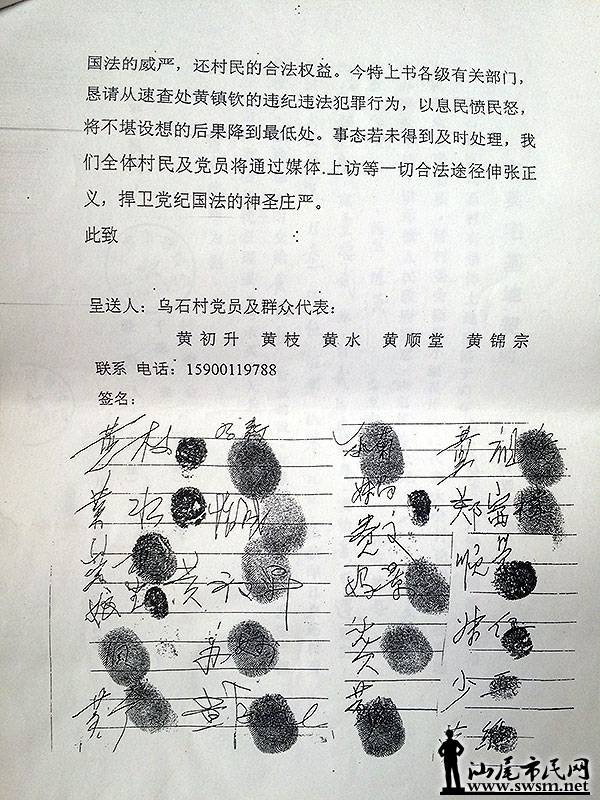 国法的威严，还村民的合法权益。今特上书各级有关部门，
恳请从速查处黄镇钦的违纪违法犯罪行为，以息民愤民怒，
将不堪设想的后果降到最低处。事态若未得到及时处理，我
们全体村民及党员将通过媒体.上访等一切合法途径伸张正
义，捍卫党纪国法的神圣庄严。
此致
呈送人：乌石村党员及群众代表：
黄初升 黄枝 黄水 黄顺堂 黄锦宗
联系 电话：15900119788
签名：
黄枝
黄祖
黄水
郑富
顺
苏
黄
少
汕尾市民网
www.swsm.net